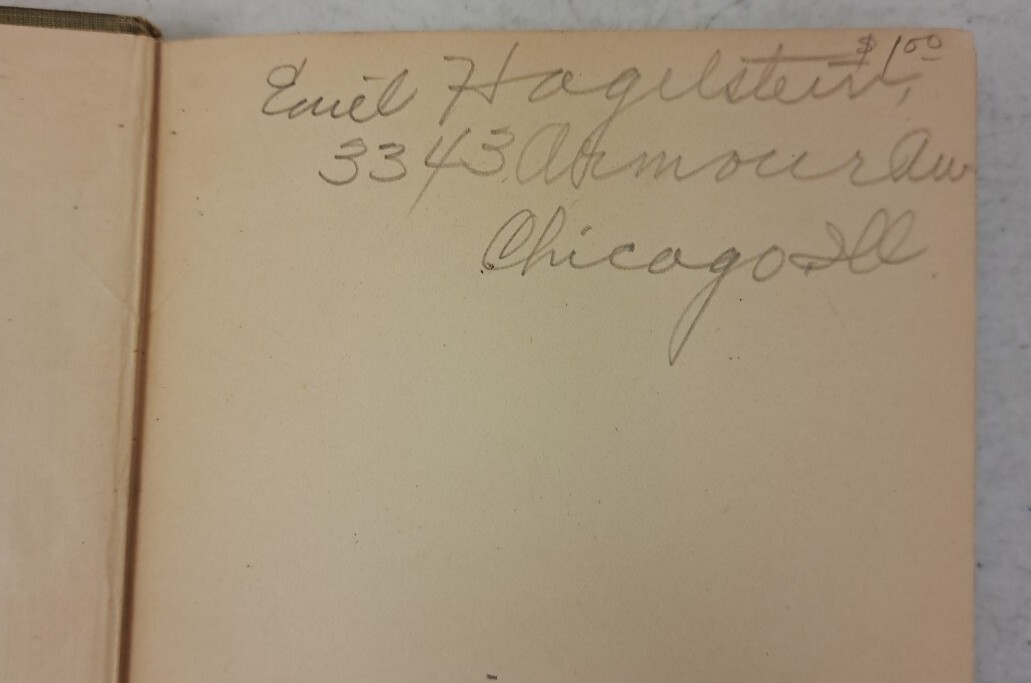 $1.00
Emil Hagelstein,
3343 Armour Ave
Chicago Ill